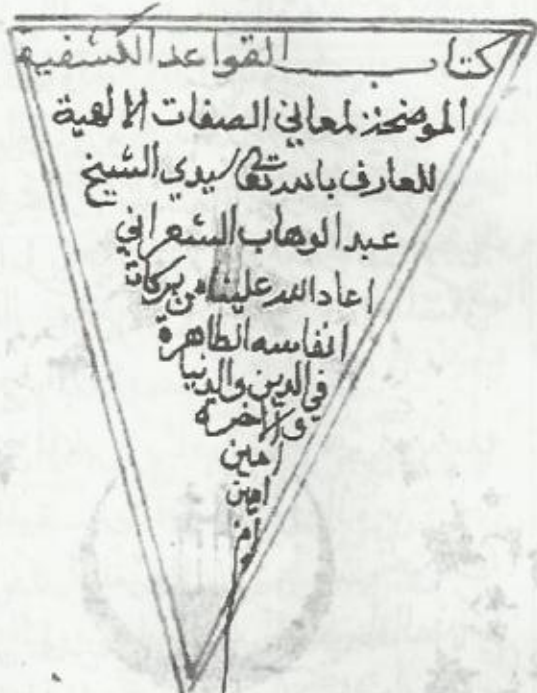 كتاب القواعد الكشفيه
الموضحة لمعاني الصفات الالهية
للعارف بالله تعالى سيدي الشيخ
عبد الوهاب الشعراني
اعاد الله علينا من بركات
انفاسه الطاهرة
في الدين والدنيا
والاخرة
امين
امين
ام